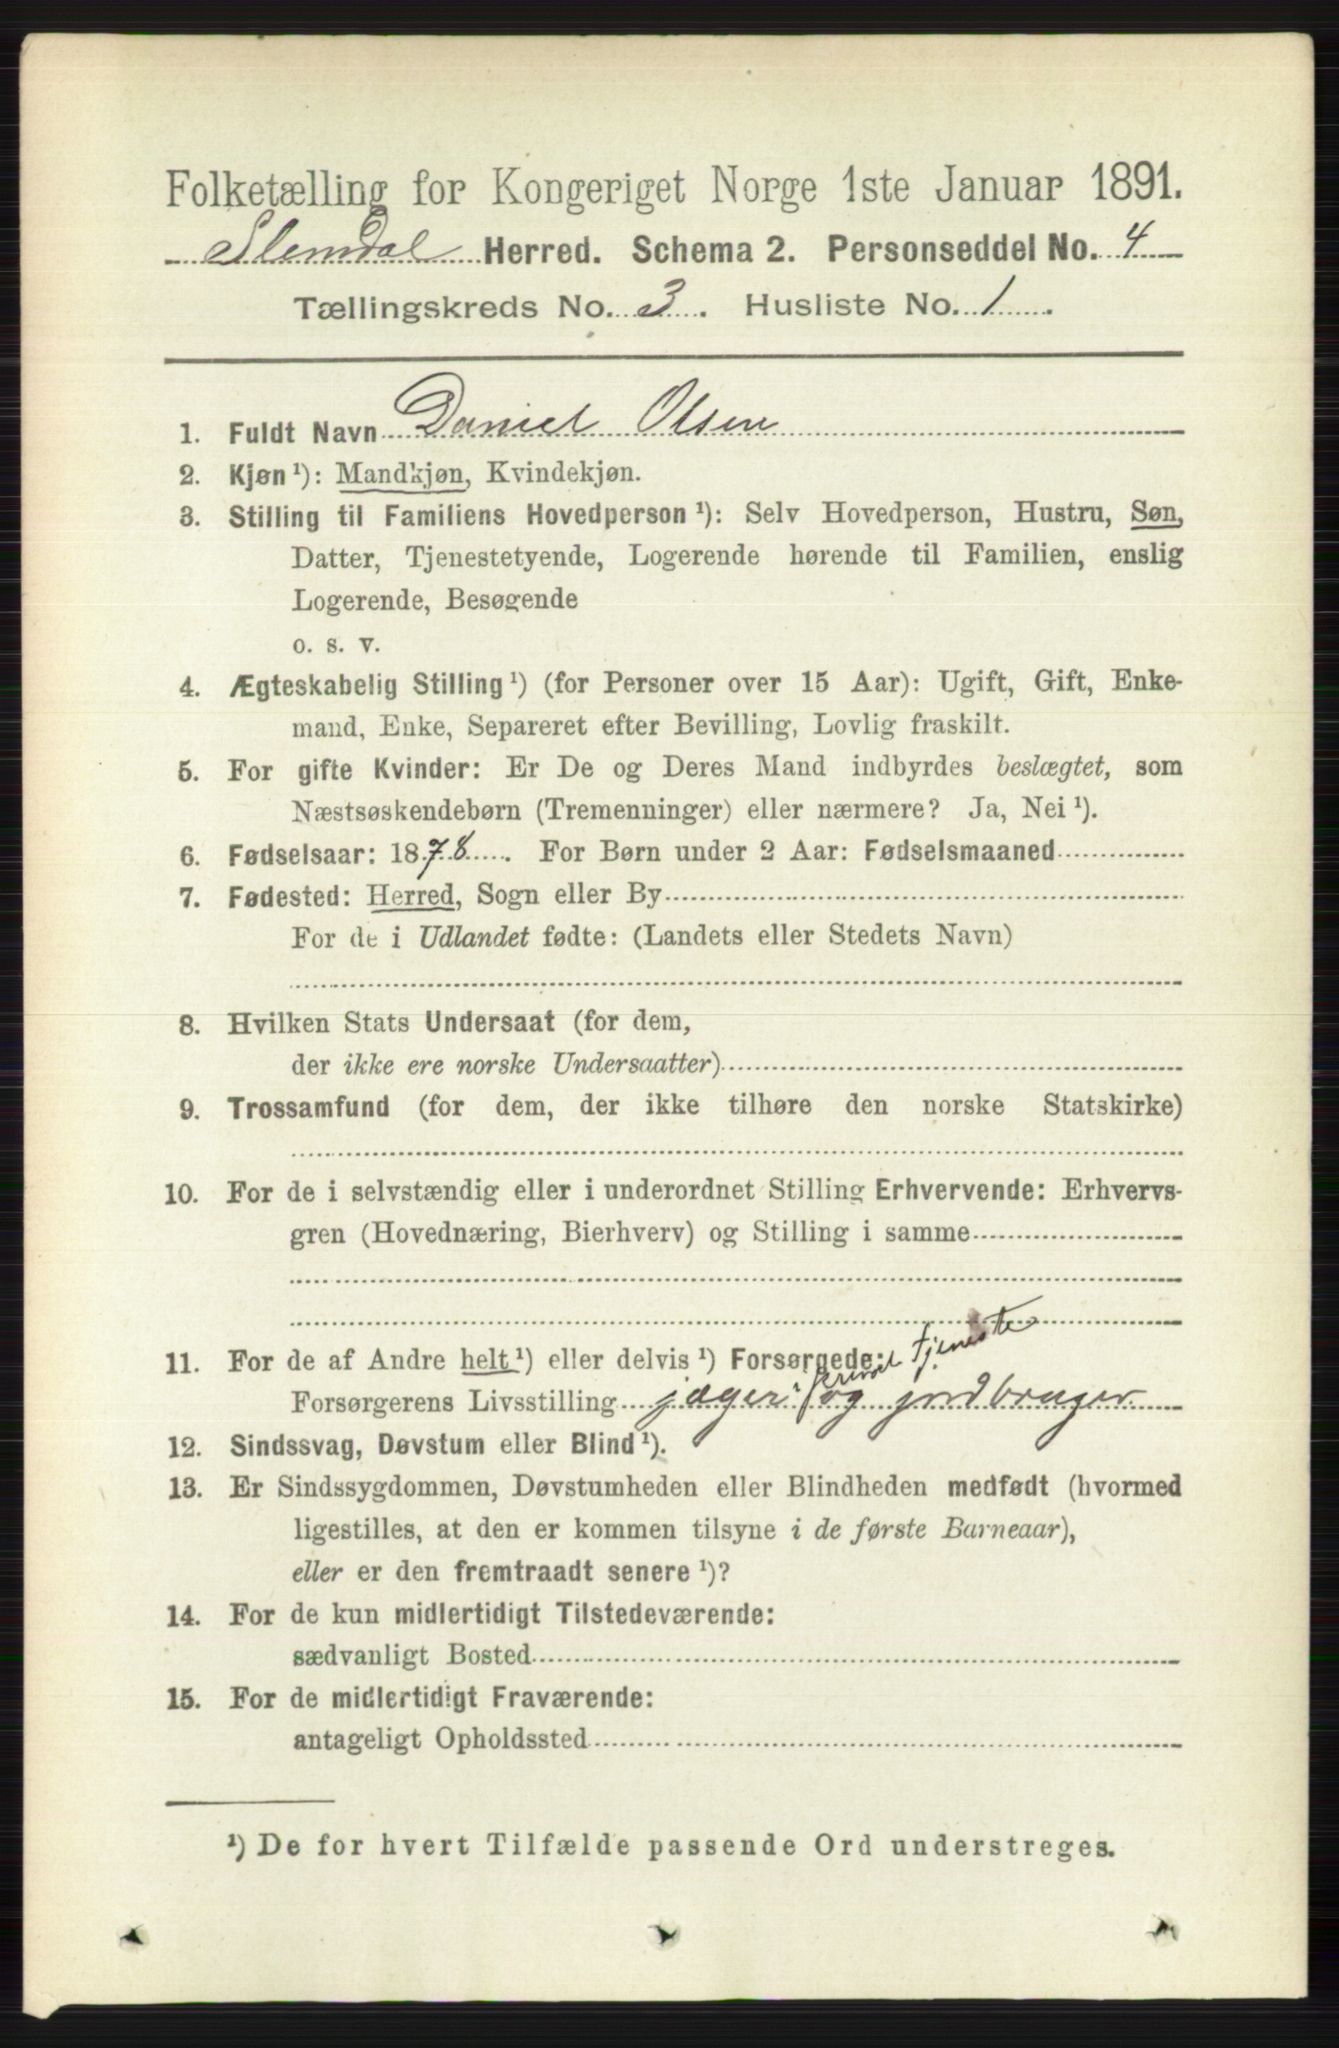 Folketælling for Kongeriget Norge 1ste Januar 1891.
Slemdal Herred. Schema 2. Personseddel No. 4
Tællingskreds No. 3. Husliste No. 1.
1. Fuldt Navn Daniel Olsen
2. Kjøn ¹): Mandkjøn, Kvindekjøn.
3. Stilling til Familiens Hovedperson ¹): Selv Hovedperson, Hustru, Søn,
Datter, Tjenestetyende, Logerende hørende til Familien, enslig
Logerende, Besøgende
o. s. v.
4. Ægteskabelig Stilling ¹) (for Personer over 15 Aar): Ugift, Gift, Enke-
mand, Enke, Separeret efter Bevilling, Lovlig fraskilt.
5. For gifte Kvinder: Er De og Deres Mand indbyrdes beslægtet, som
Næstsøskendebørn (Tremenninger) eller nærmere? Ja, Nei ¹).
6. Fødselsaar: 1878. For Børn under 2 Aar: Fødselsmaaned
7. Fødested: Herred, Sogn eller By
For de i Udlandet fødte: (Landets eller Stedets Navn)
8. Hvilken Stats Undersaat (for dem,
der ikke ere norske Undersaatter)
9. Trossamfund (for dem, der ikke tilhøre den norske Statskirke)
10. For de i selvstændig eller i underordnet Stilling Erhvervende: Erhvervs-
gren (Hovednæring, Bierhverv) og Stilling i samme
11. For de af Andre helt ¹) eller delvis ¹) Forsørgede:
i privat tjeneste
Forsørgerens Livsstilling jæger og jordbruger.
12. Sindssvag, Døvstum eller Blind ¹).
13. Er Sindssygdommen, Døvstumheden eller Blindheden medfødt (hvormed
ligestilles, at den er kommen tilsyne i de første Barneaar),
eller er den fremtraadt senere ¹)?
14. For de kun midlertidigt Tilstedeværende:
sædvanligt Bosted
15. For de midlertidigt Fraværende:
antageligt Opholdssted
¹) De for hvert Tilfælde passende Ord understreges.